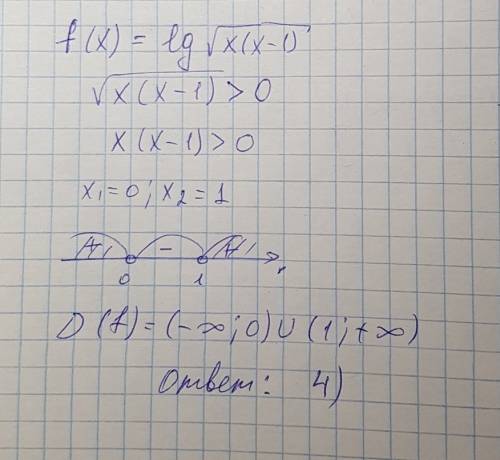 f(x) = lg √x(x-1)
√x(x-1) > 0
x(x-1) > 0
x₁=0; x₂=1
+ - +
0 1
D(f) = (-∞; 0) ∪ (1; +∞)
Ответ: 4)